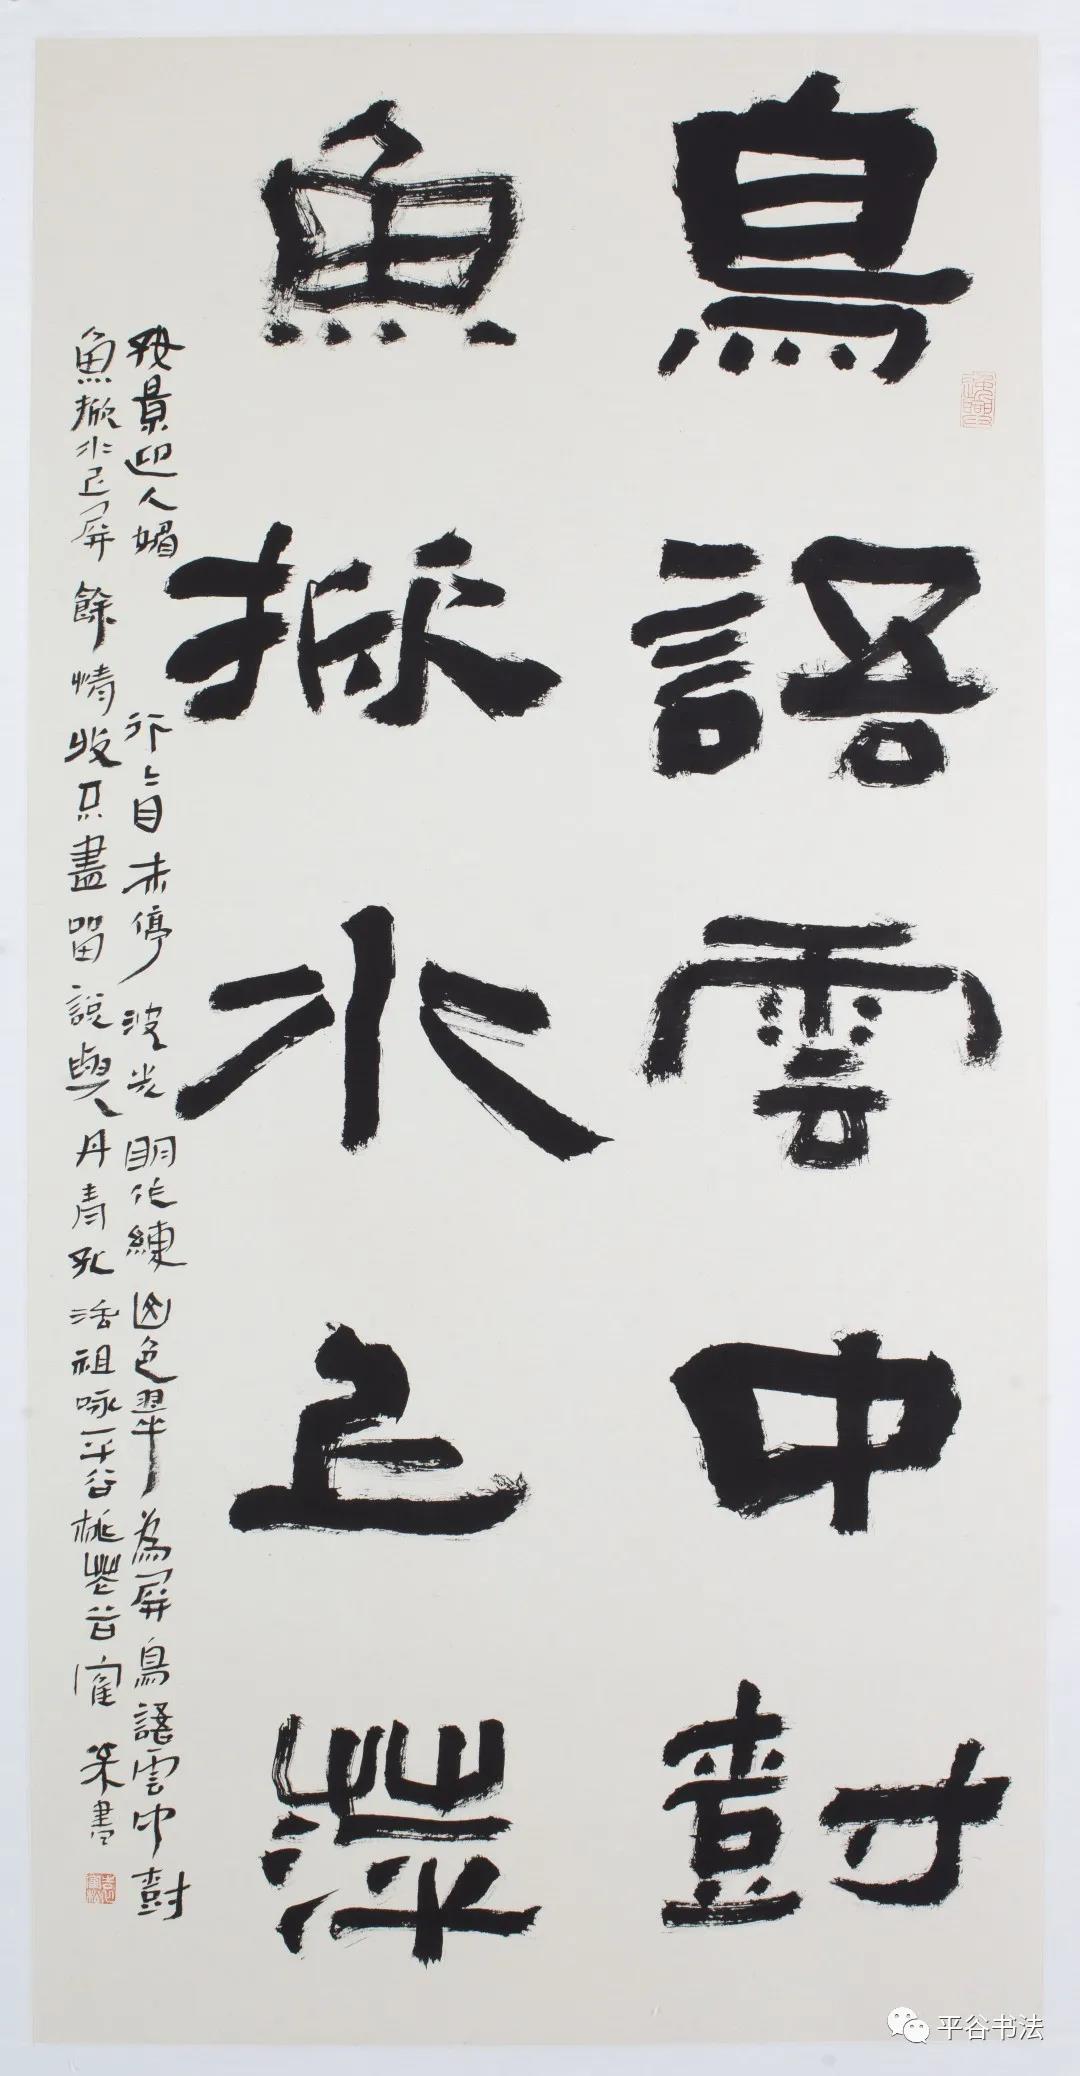 鳥語雲中樹
魚掀水上萍
好景迎人媚行行目未停波光明作練山色翠為屏鳥語雲中樹
魚掀水上屏餘情收不盡留說與丹青孔祖咏平谷桃花書
平谷书法